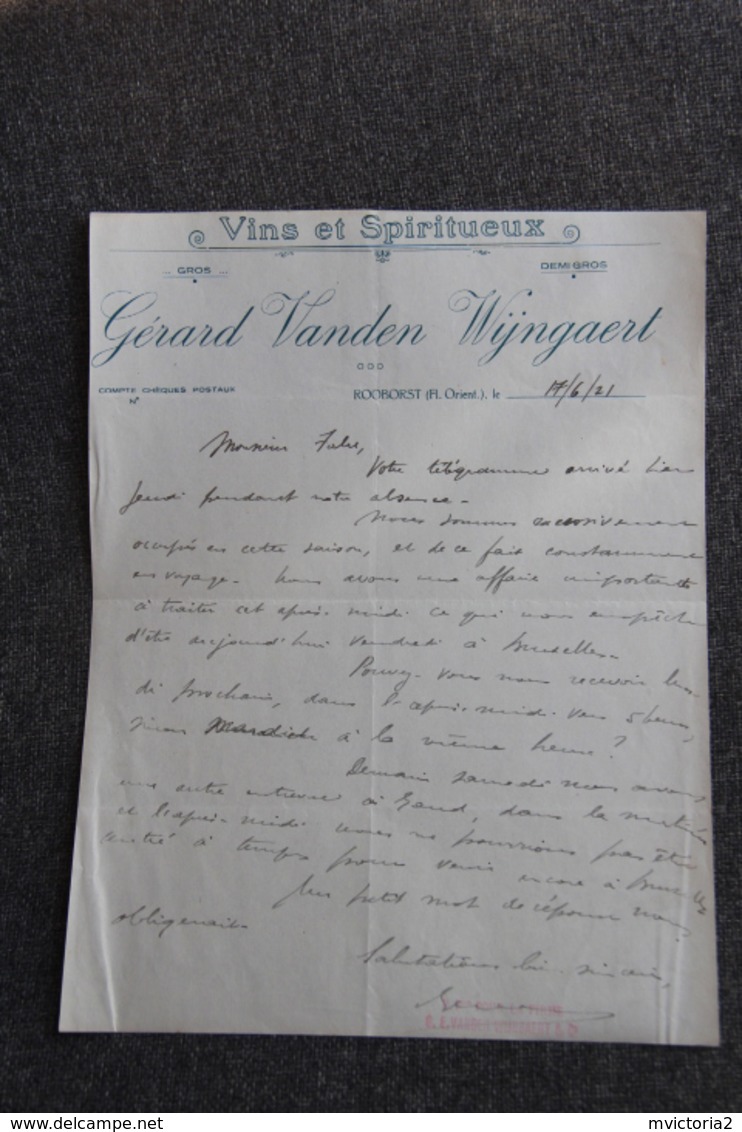 Vins et Spiritueux
GROS
DEMI GROS
Gérard Vanden Wijngaert
COMPTE CHÈQUES POSTAUX
N°
ROOBORST (Fl. Orient.), le 17/6/21
Monsieur Fabre,
Votre télégramme arrivé hier
jeudi pendant notre absence.
Nous sommes excessivement
occupés en cette saison, et de ce fait constamment
en voyage. Nous avons une affaire importante
à traiter cet après-midi ce qui nous empêche
d'être aujourd'hui vendredi à Bruxelles.
Pouvez-vous nous recevoir lun-
di prochain, dans l'après-midi vers 5 heures,
sinon mardi à la même heure?
Demain samedi nous avons
une autre entrevue à Gand, dans la matinée
et l'après-midi nous ne pourrions pas être
rentré à temps pour venir encore à Bruxelles
Un petit mot de réponse nous
obligerait.
Salutations bien sincères,
delcampe.net
mvictoria2